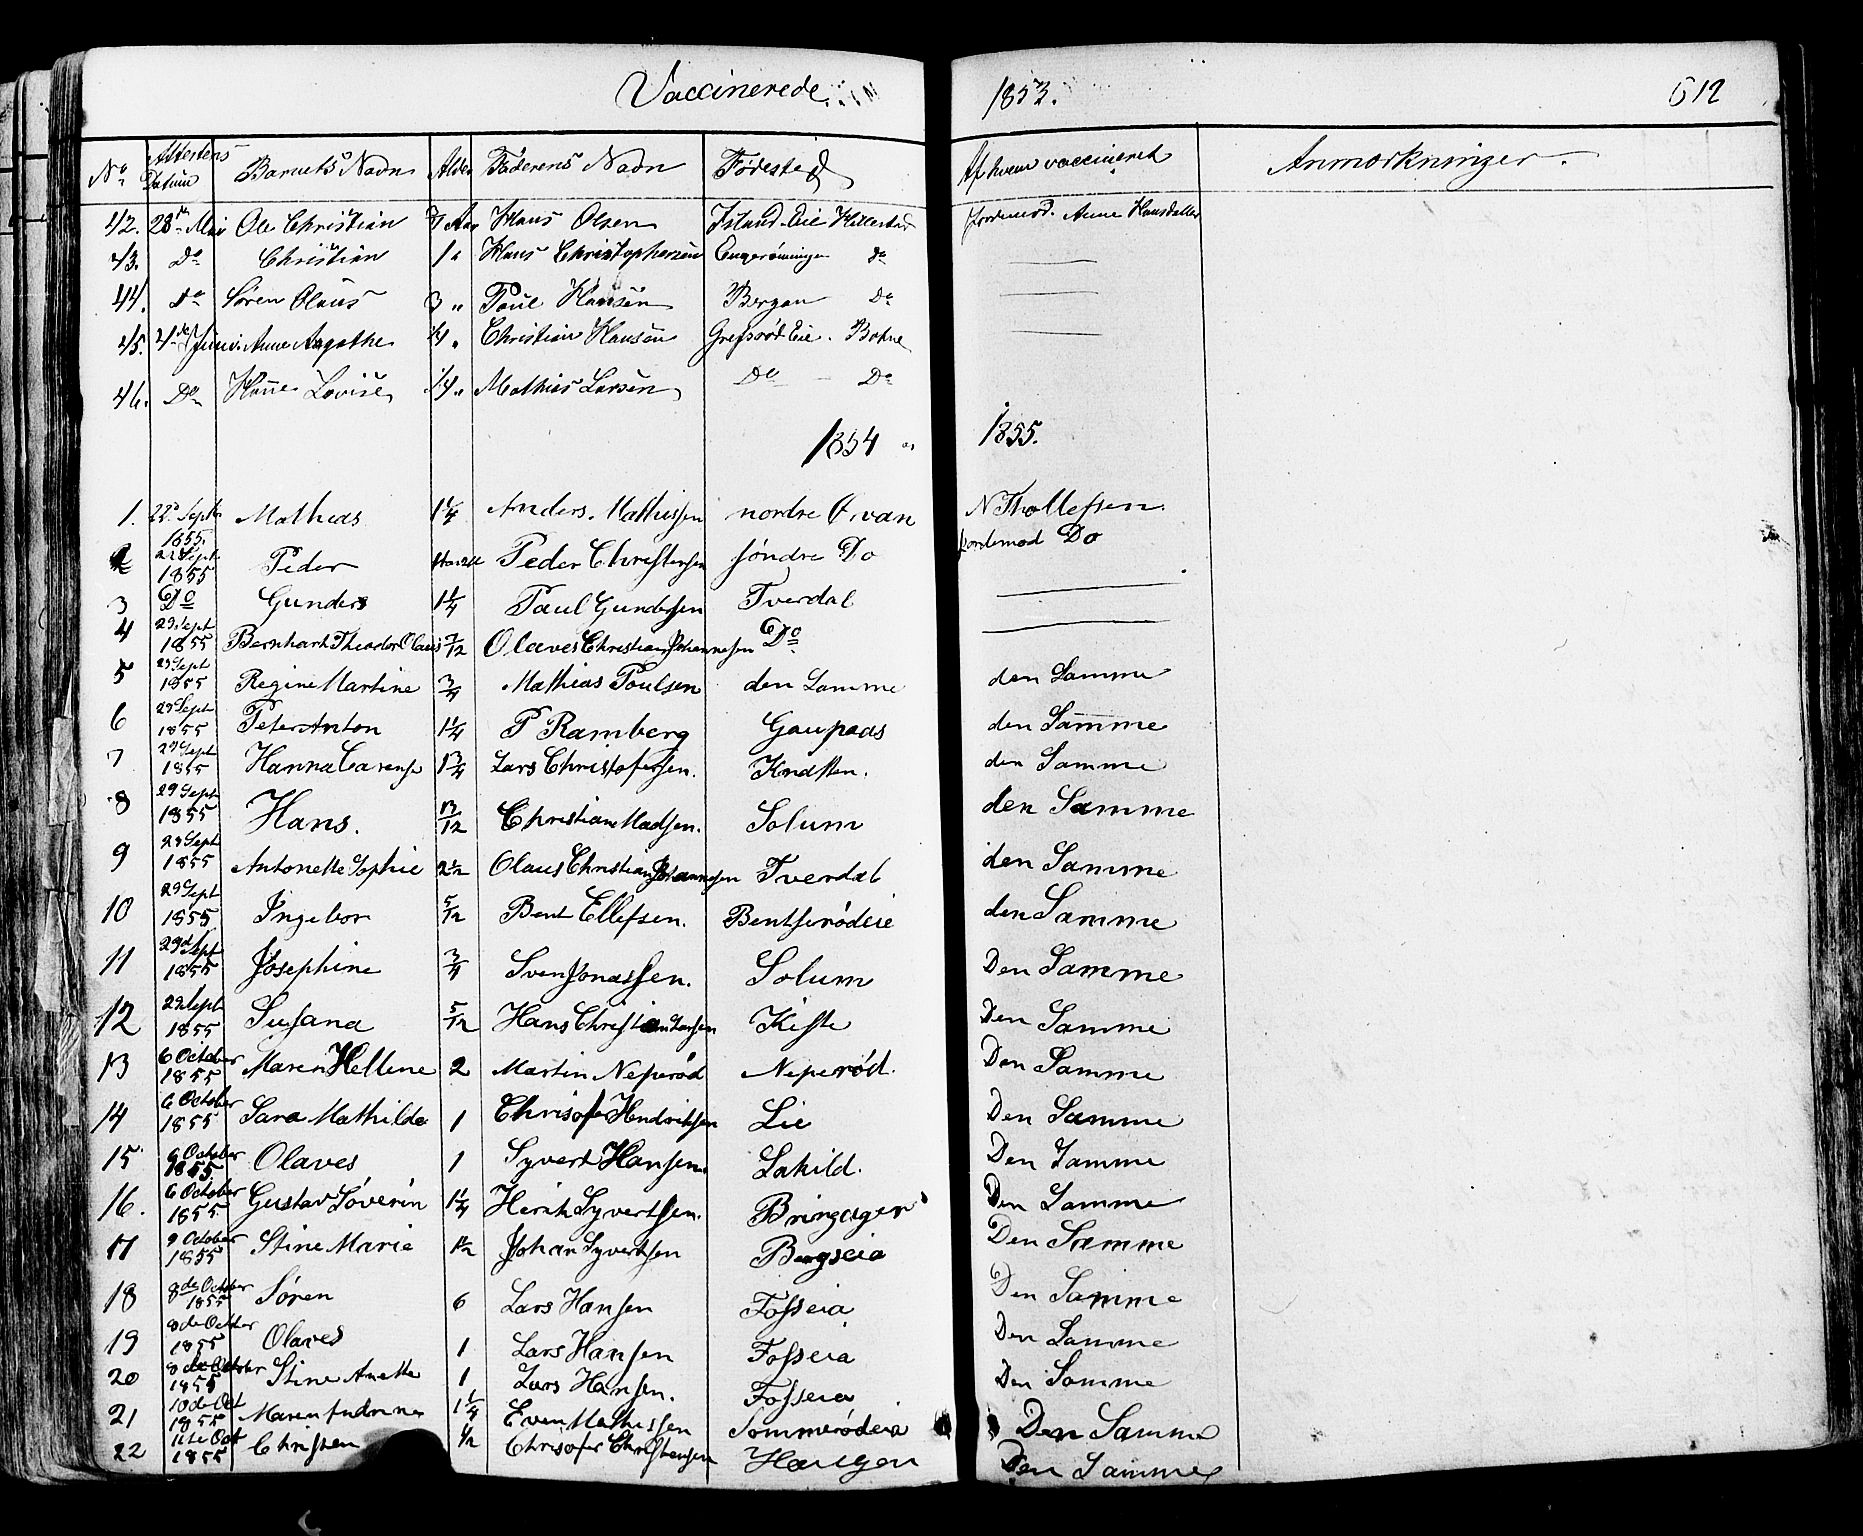 Vaccinerede 1853. 612
No. Attestens Datum Barnets Navn Alder Faderens Navn Fødested Af hvem vaccineret Anmærkninger.
42. 28de Mai Ole Christian Hans Olsen Island Eie Hillestad Jordemod. Anne Hansdatter
43. Do Christian 1 " Hans Christophersen Do —
44. Do Søren Olaus 3 " Poul Hansen Bergan Do —
45. 4de Juni Anne Aagathe 1/4 " Christian Hansen Grefsrød Eie. Botne —
46. Do Hanne Lovise 1/4 " Mathis Larsen Do — Do
1854 og 1855.
1. 22de Sept 1855. Mathias 1 1/4 Anders Mathissen nordre Ø van N Thollefsen
2 22 Sept 1855 Peder Peder Christensen søndre Do jordemod Do
3 Do Gunders 1 1/4 Paul Gundersen Tverdal —
4 29 Sept 1855 Bernhart Theodor Olaus 7/12 Olaves Christian Johannesen Do —
5 29 Sept 1855 Regine Martine 3/4 Mathias Poulsen den Samme den Samme
6 29 Sept 1855 Peter Anton 1 1/4 P Ramberg Gaupaas den Samme
7 29 Sept 1855 Hanna Carense 1 3/4 Lars Christofersen. Knatten. den Samme
8 29 Sept 1855 Hans. Christian Madsen. Solum den Samme
9 29 Sept 1855 Antonette Sophie 2 1/2 Olaus Christian Johannesen Tverdal den Samme
10 29 Sept 1855 Ingebor 5/12 Bent Ellefsen. Bentserødeie den Samme
11 29de Sept 1855 Josephine 3/4 Sven Jonassen. Solum Den Samme
12 29 Sept 1855 Susana 5/12 Hans Christian Larsen Kiste Den Samme
13 6 October 1855 Maren Hellene 2 Martin Neperød Neperød. Den Samme
14 6 October 1855 Sara Mathilde 1 Chrisofer Hendriksen Lie Den Samme
15 6 October 1855 Olaves 1 Syvert Hansen Lakild. Den Samme
16. 6 October 1855 Gustav Søverin 1 1/4 Henrik Syvertsen. Bringager Den Samme
17 9 October 1855 Stine Marie 1 1/2 Johan Syvertsen Bergseia Den Samme
18 8de October 1855 Søren 6 Lars Hansen Fosseia Den Samme
19 8de October 1855 Olaves 1 Lars Hansen Fosseia Den Samme
20 8de October 1855 Stine Anette 1 Lars Hansen. Fosseia Den Samme
21 10de Oct 1855 Maren Andrine 1 1/4 Even Mathissen Sommerødeia Den Samme
22 11te Oct 1855 Christen 1/2 Chrisofer Christensen Haugen Den Samme